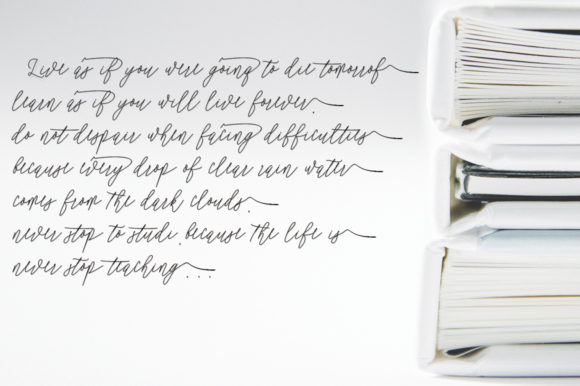 Live as if you were going to die tomorrof
learn as if you will live forever.
do not despair when facing difficulties
because every drop of clear rain water
comes from the dark clouds.
never stop to studi. because the life is
never stop teaching...